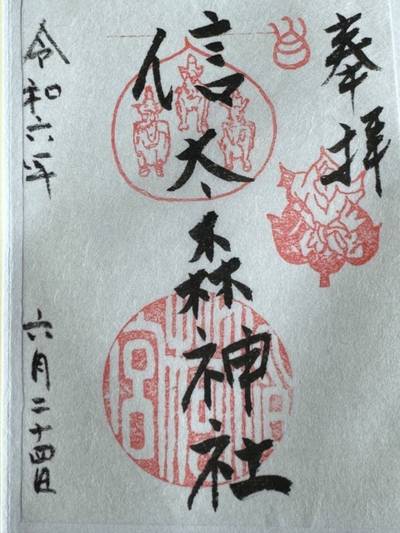 奉拝
信太森神社
令和六年 六月二十四日